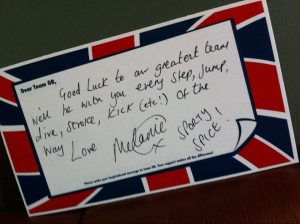 Dear Team GB,
Good Luck to our greatest team
will be with you every step, jump,
dive, stroke, kick (etc!) of the
way Love Melanie x SPORTY!
SPICE!
Please write your inspirational message to team GB. Your support makes all the difference!